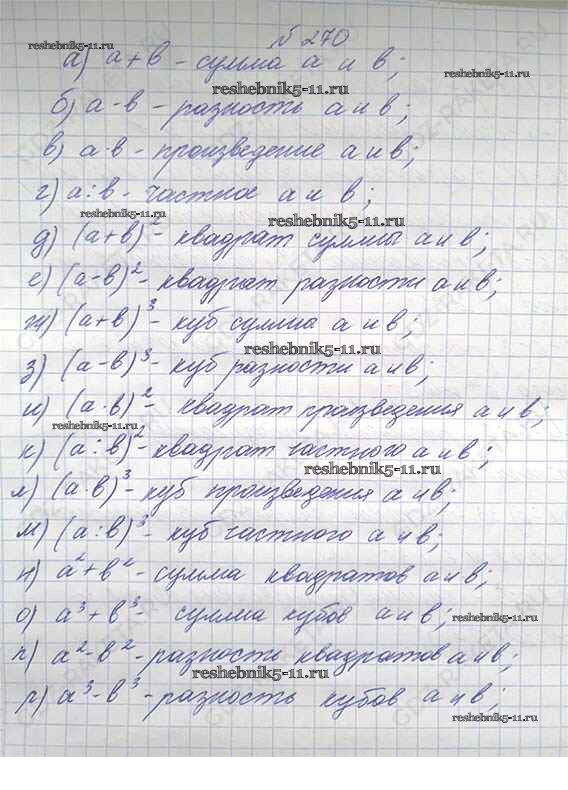 № 270
а) а + в - сумма а и в;
б) а - в - разность а и в;
в) а · в - произведение а и в;
г) а : в - частное а и в;
д) (а + в)² - квадрат суммы а и в;
е) (а - в)² - квадрат разности а и в;
ж) (а + в)³ - куб сумма а и в;
з) (а - в)³ - куб разности а и в;
и) (а · в)² - квадрат произведения а и в;
к) (а : в)² - квадрат частного а и в;
л) (а · в)³ - куб произведения а и в;
м) (а : в)³ - куб частного а и в;
н) а² + в² - сумма квадратов а и в;
о) а³ + в³ - сумма кубов а и в;
п) а² - в² - разность квадратов а и в;
р) а³ - в³ - разность кубов а и в;
reshebnik5-11.ru
reshebnik5-11.ru
reshebnik5-11.ru
reshebnik5-11.ru
reshebnik5-11.ru
reshebnik5-11.ru
reshebnik5-11.ru
reshebnik5-11.ru
reshebnik5-11.ru
reshebnik5-11.ru
reshebnik5-11.ru